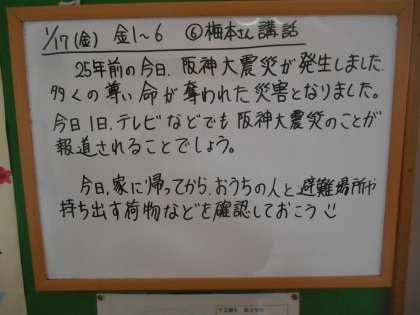 1/17(金) 金1〜6 ⑥梅本さん講話
25年前の今日、阪神大震災が発生しました。
多くの尊い命が奪われた災害となりました。
今日1日、テレビなどでも阪神大震災のことが
報道されることでしょう。
今日、家に帰ってから、おうちの人と避難場所や
持ち出す荷物などを確認しておこう